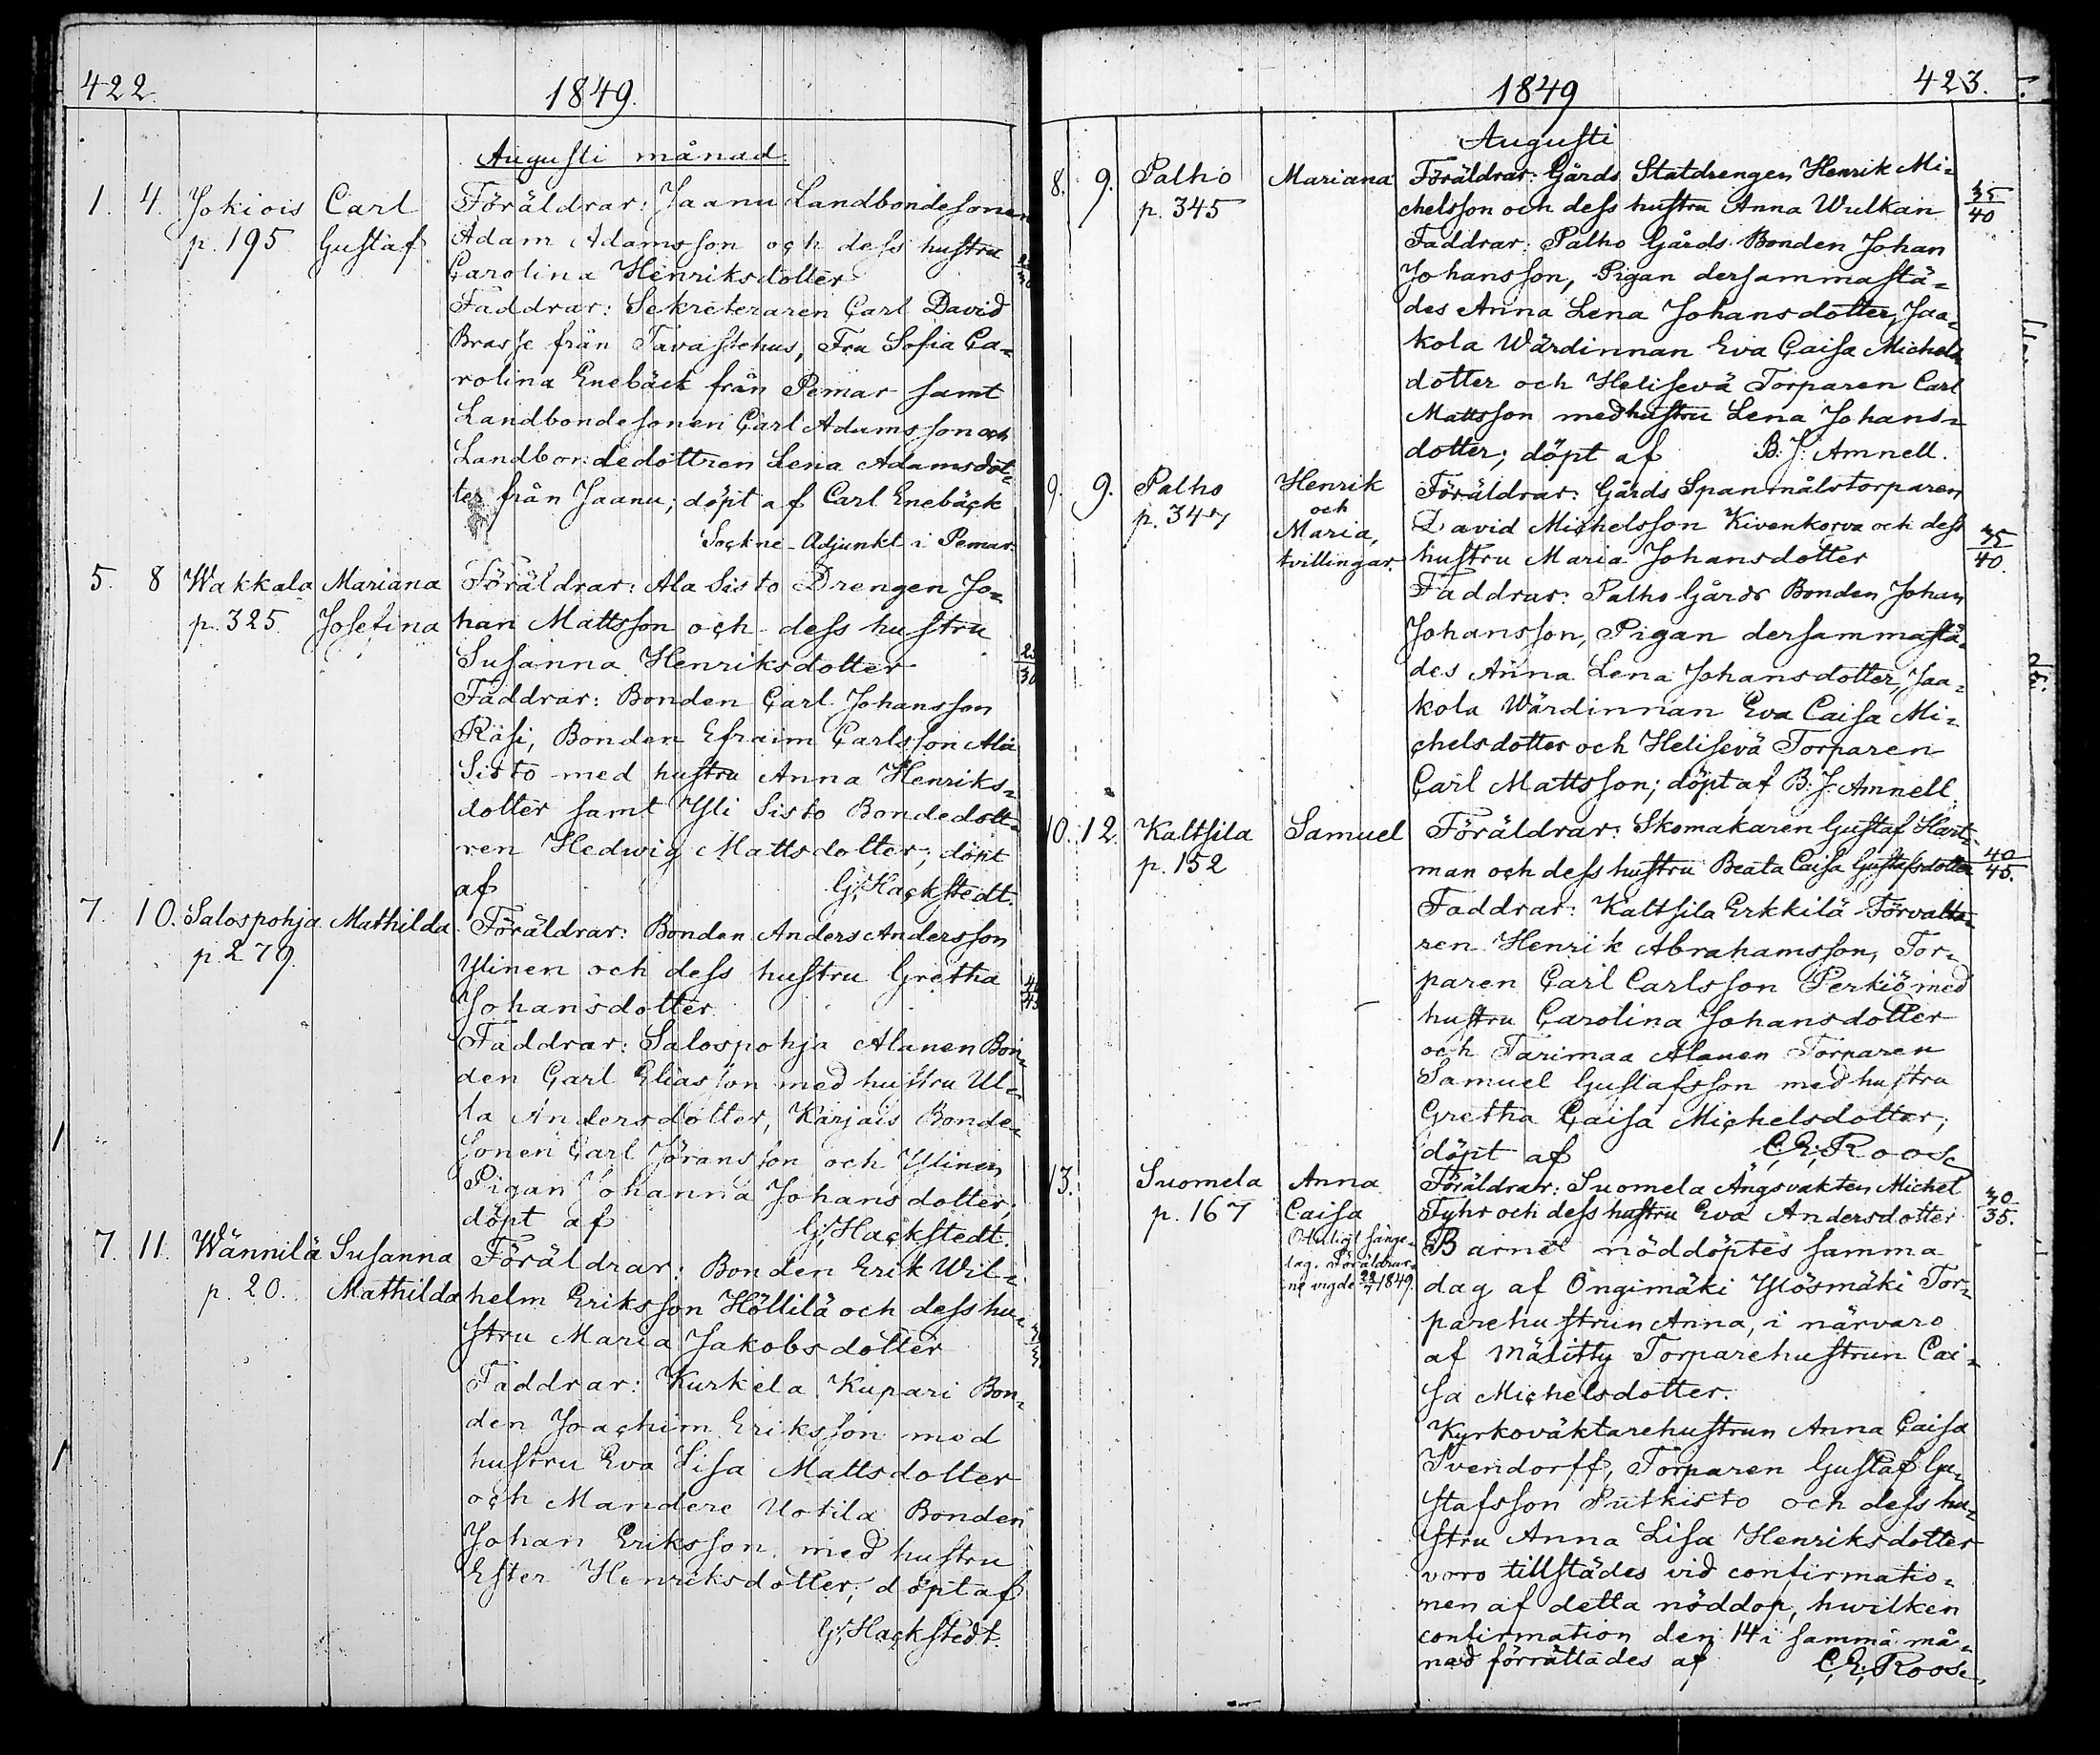 422.
1849.
Augusti månad.
1. 4. Jokiois Carl Föräldrar: Jaanu Landbondesonen
p. 195 Gustaf Adam Adamsson och dess hustru
Carolina Henriksdotter
Faddrar: Sekreteraren Carl David
Brasse från Tavastehus, Fru Sofia Ca=
rolina Enebäck från Pemar samt
Landbondesonen Carl Adamsson och
Landbondedottren Lena Adamsdot=
ter från Jaanu; döpt af Carl Enebäck
Sockne-Adjunkt i Pemar.
5. 8 Wakkala Mariana Föräldrar: Ala Sisto Drengen Jo=
p. 325. Josefina han Mattsson och dess hustru
Susanna Henriksdotter
Faddrar: Bonden Carl Johansson
Räsi, Bonden Efraim Carlsson Ala
Sisto med hustru Anna Henriks=
dotter samt Yli Sisto Bondedott=
ren Hedwig Mattsdotter; döpt
af G. Hackstedt.
7. 10. Salospohja Mathilda Föräldrar: Bonden Anders Andersson
p. 279. Ylinen och dess hustru Gretha
Johansdotter
Faddrar: Salospohja Alanen Bon=
den Carl Eliasson med hustru Ul=
la Andersdotter, Karjais Bonde=
sonen Carl Göransson och Ylinen
Pigan Johanna Johansdotter;
döpt af G. Hackstedt.
7. 11. Wännilä Susanna Föräldrar: Bonden Erik Wil=
p. 20. Mathilda helm Eriksson Höllilä och dess hu=
stru Maria Jakobsdotter
Faddrar: Kurkela Kupari Bon=
den Joachim Eriksson med
hustru Eva Lisa Mattsdotter
och Mandere Uotila Bonden
Johan Eriksson med hustru
Ester Henriksdotter; döpt af
G. Hackstedt.
1849
423.
Augusti
8. 9. Palho Mariana Föräldrar: Gårds Statdrengen Henrik Mi=
p. 345 chelsson och dess hustru Anna Wulkan 35/40
Faddrar: Palho Gårds Bonden Johan
Johansson, Pigan dersammastä=
des Anna Lena Johansdotter, Jaa=
kola Wärdinnan Eva Caisa Michels
dotter och Helisevä Torparen Carl
Mattsson med hustru Lena Johans=
dotter; döpt af B. J. Amnell.
9. 9. Palho Henrik Föräldrar: Gårds Spanmålstorparen
p. 347 och David Michelsson Kivenkorva och dess 35/40.
Maria, hustru Maria Johansdotter
tvillingar. Faddrar: Palho Gårds Bonden Johan
Johansson, Pigan dersammastä=
des Anna Lena Johansdotter, Jaa=
kola Wärdinnan Eva Caisa Mi=
chelsdotter och Helisevä Torparen
Carl Mattsson; döpt af B. J. Amnell
10. 12. Kaltsila Samuel Föräldrar: Skomakaren Gustaf Hart=
p. 152 man och dess hustru Beata Caisa Gustafsdotter 40/45.
Faddrar: Kaltsila Erkkilä Förvalta=
ren Henrik Abrahamsson, Tor=
paren Carl Carlsson Perkiö med
hustru Carolina Johansdotter
och Tarimaa Alanen Torparen
Samuel Gustafsson med hustru
Gretha Caisa Michelsdotter;
döpt af C. E. Roos
13. Suomela Anna Föräldrar: Suomela Ängsvakten Michel 30/35.
p. 167 Caisa Fyhr och dess hustru Eva Andersdotter
Otidigt sänge= Barnet nöddöptes samma
lag. Föräldrar= dag af Ongimäki Ylösmäki Tor=
ne vigde 22/7 1849. parehustrun Anna, i närvaro
af Mälitty Torparehustrun Cai=
sa Michelsdotter.
Kyrkoväktarehustrun Anna Caisa
Svendorff, Torparen Gustaf Gu=
stafsson Putkisto och dess hu=
stru Anna Lisa Henriksdotter
voro tillstädes vid confirmatio=
nen af detta nöddop, hwilken
confirmation den 14 i samma må=
nad förrättades af C. E. Roos.